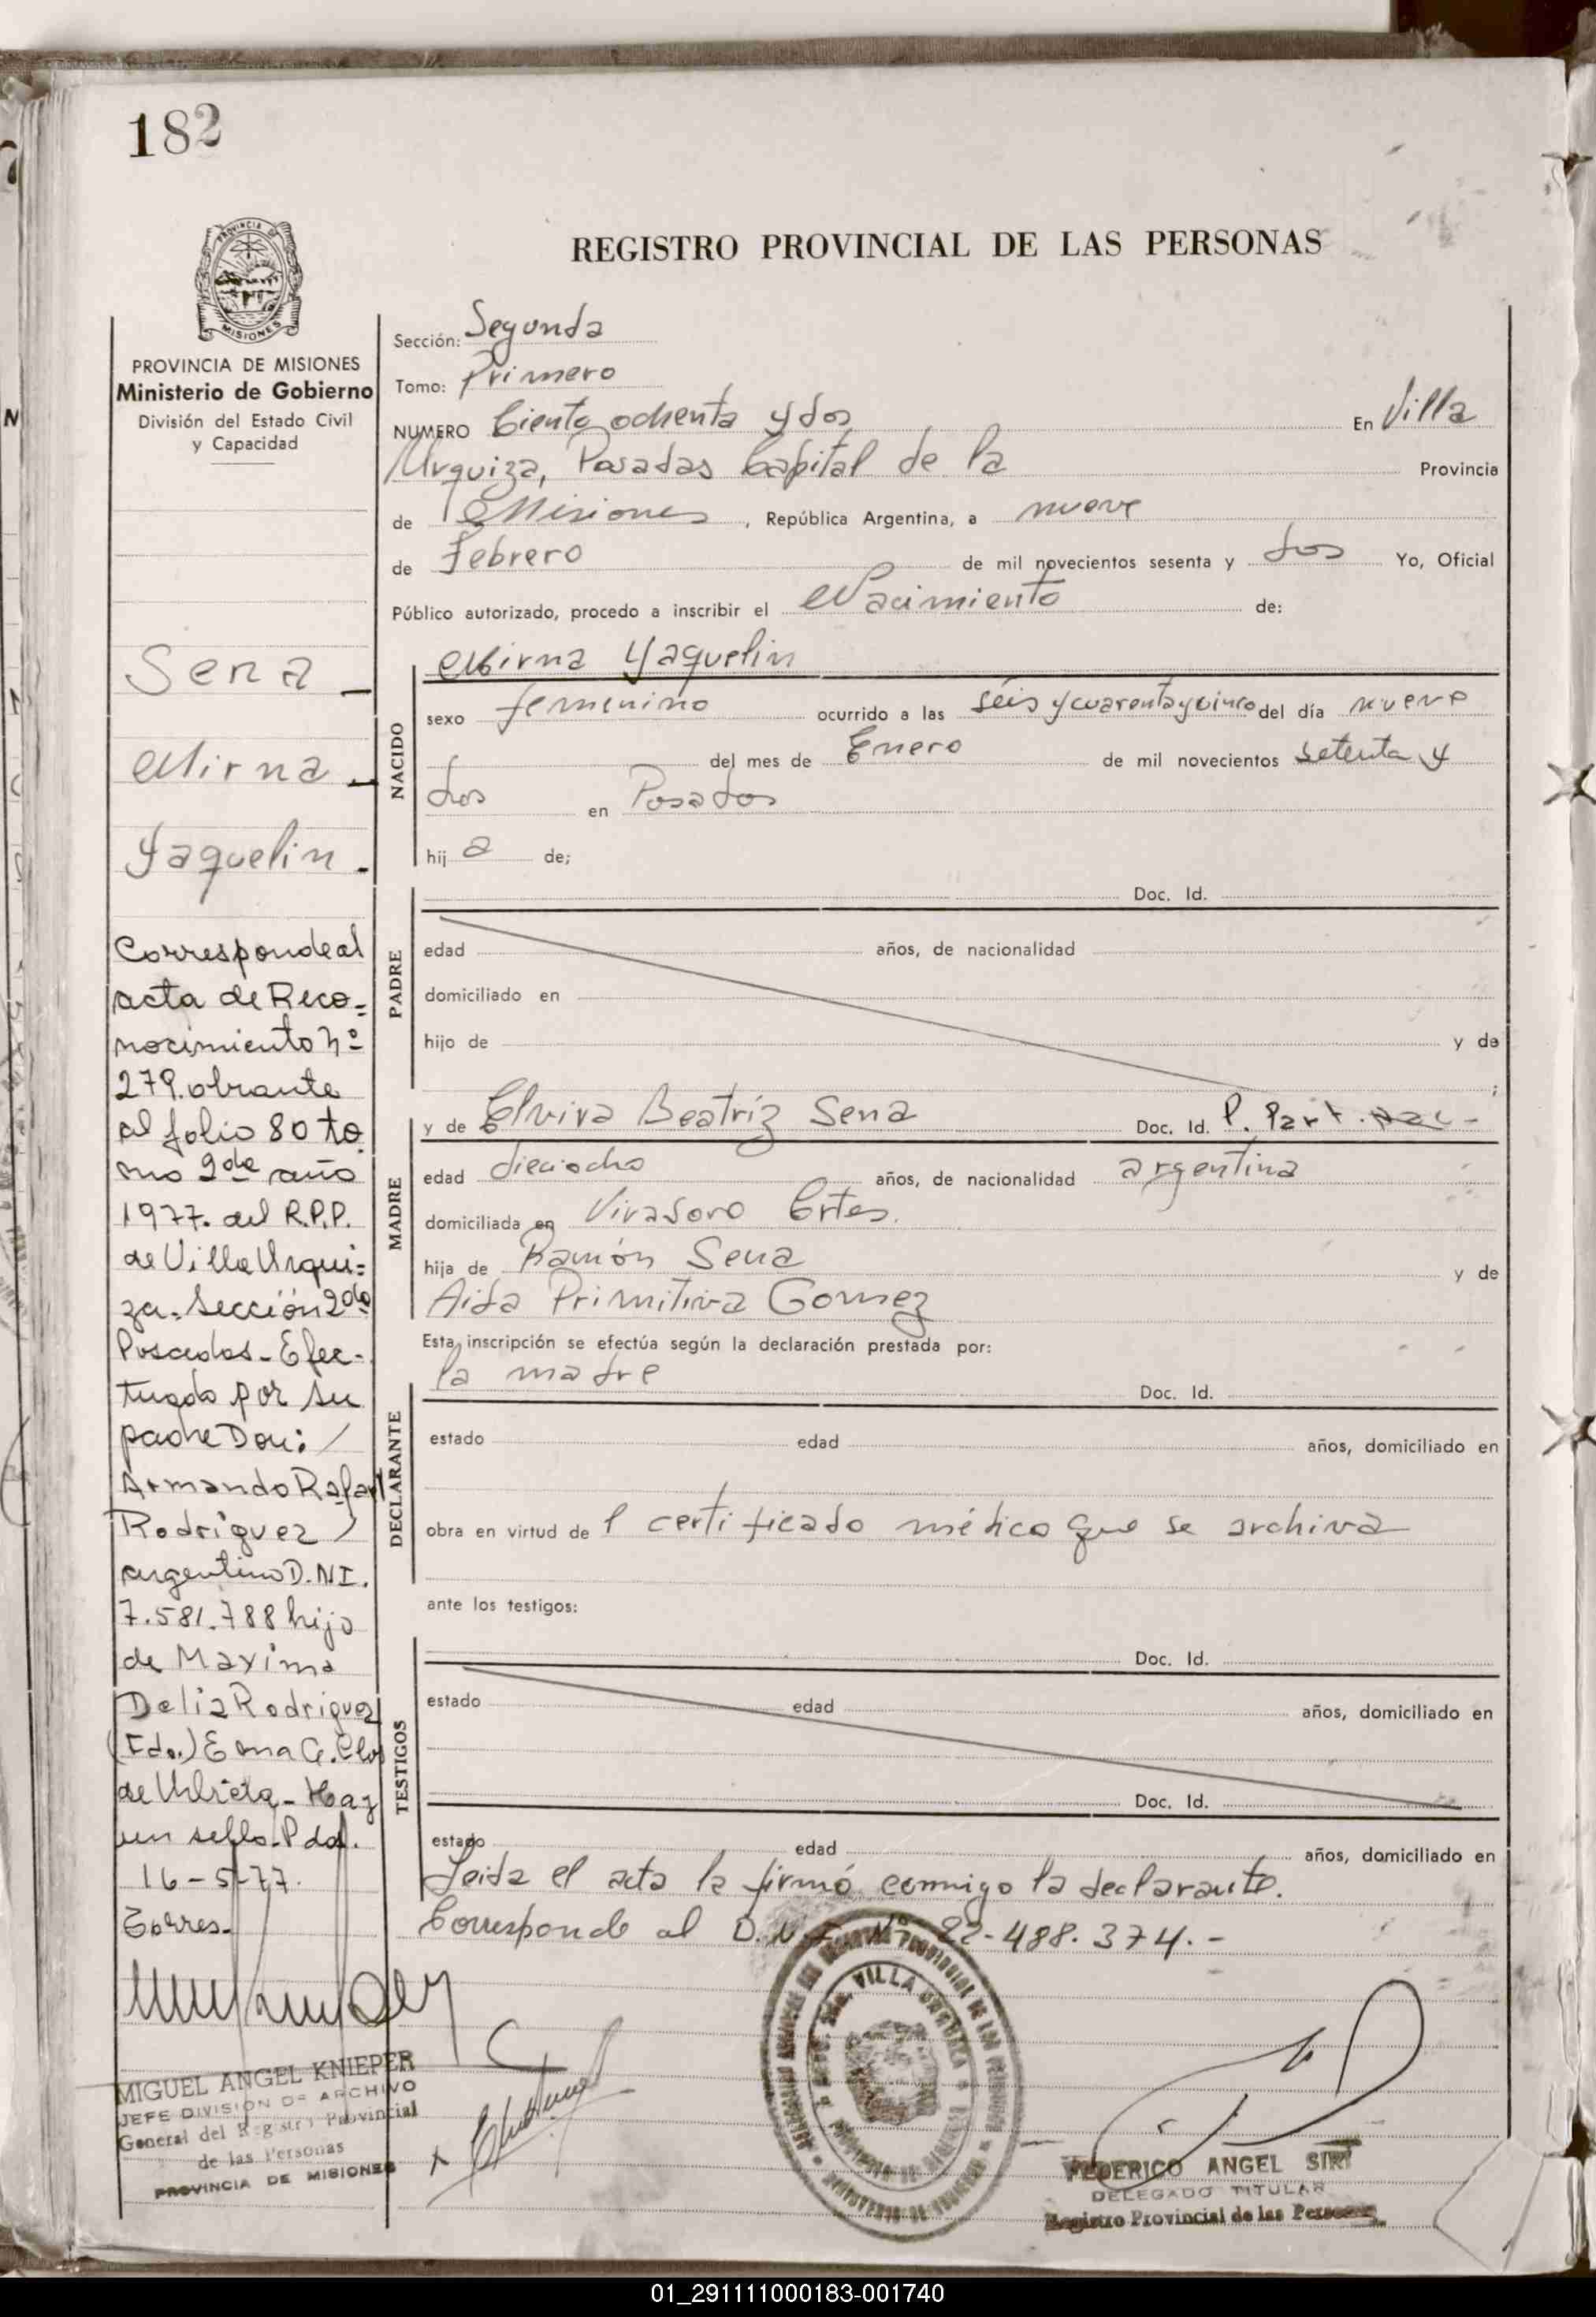 182
PROVINCIA DE
MISIONES
PROVINCIA DE MISIONES
Ministerio de Gobierno
División del Estado Civil
y Capacidad
REGISTRO PROVINCIAL DE LAS PERSONAS
Sección: Segunda
Tomo: Primero
NUMERO Ciento ochenta y dos En Villa
Urquiza, Posadas Capital de la Provincia
de Misiones, República Argentina, a nueve
de Febrero de mil novecientos sesenta y dos Yo, Oficial
Público autorizado, procedo a inscribir el Nacimiento de:
NACIDO
Mirna Yaquelin
sexo femenino ocurrido a las seis y cuarenta y cinco del día nueve
del mes de Enero de mil novecientos setenta y
dos en Posadas
hij a de;
PADRE
Doc. Id.
edad años, de nacionalidad
domiciliado en
hijo de y de
;
MADRE
y de Elvira Beatriz Sena Doc. Id. P. Part. Nac -
edad dieciocho años, de nacionalidad argentina
domiciliada en Virasoro Ctes.
hija de Ramón Sena y de
Aida Primitiva Gomez
Esta inscripción se efectúa según la declaración prestada por:
DECLARANTE
la madre Doc. Id.
estado edad años, domiciliado en
obra en virtud de l certificado médico que se archiva
ante los testigos:
TESTIGOS
Doc. Id.
estado edad años, domiciliado en
Doc. Id.
estado edad años, domiciliado en
Leida el acta la firmó conmigo la declarante.
Corresponde al D.N.I. Nº 22-488.374.-
Sena -
Mirna -
Yaquelin -
Corresponde al
acta de Reco-
nocimiento nº
279. obrante
al folio 80 to
mo 2do año
1977. del R.P.P.
de Villa Urqui-
za. Sección 2da
Posadas - Efec-
tuado por su
padre Don: /
Armando Rafael
Rodríguez /
argentino D.NI.
7.581.788 hijo
de Maxima
Delia Rodriguez
(Fdo.)
de - Hay
un sello. Pdas.
16-5-77.
Torres.
MIGUEL ANGEL KNIEPER
JEFE DIVISION DE ARCHIVO
General del Registro Provincial
de las Personas
PROVINCIA DE MISIONES
VILLA URQUIZA
FEDERICO ANGEL SIRI
DELEGADO TITULAR
Registro Provincial de las Personas
01_291111000183-001740